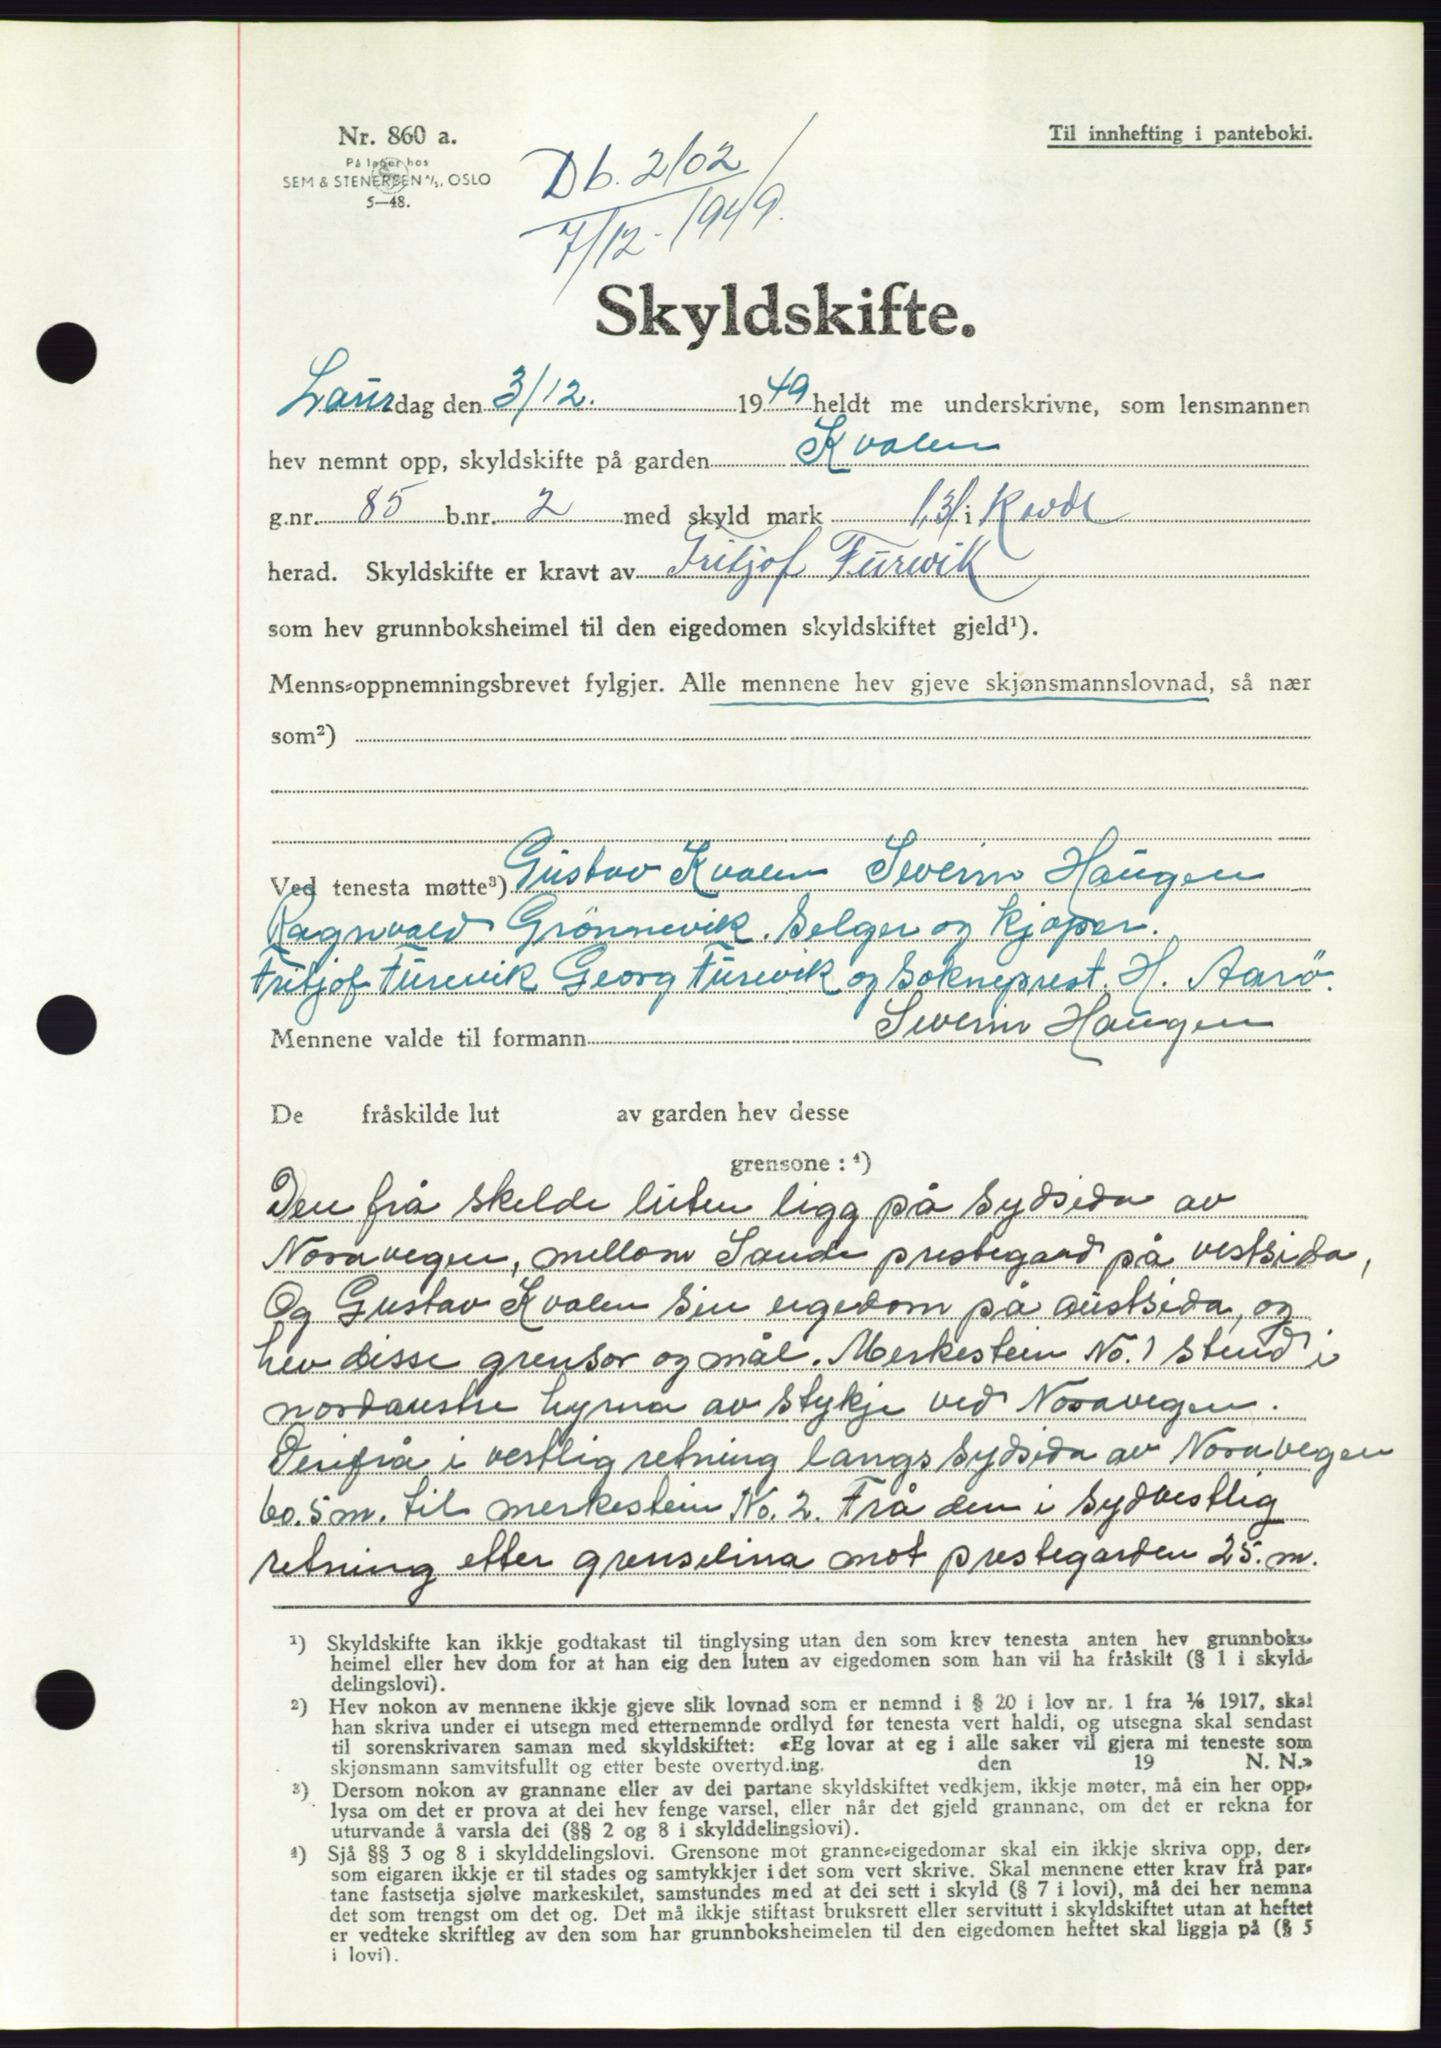 Nr. 860 a.
På lager hos
SEM & STENERSEN A/S, OSLO
5—48.
Til innhefting i panteboki.
Db. 2102
7/12-1949.
Skyldskifte.
Laurdag den 3/12. 1949 heldt me underskrivne, som lensmannen
hev nemnt opp, skyldskifte på garden Kvalen
g.nr. 85 b.nr. 2 med skyld mark 1,31 i
herad. Skyldskifte er kravt av Fritjof Furevik
som hev grunnboksheimel til den eigedomen skyldskiftet gjeld¹).
Menns-oppnemningsbrevet fylgjer. Alle mennene hev gjeve skjønsmannslovnad, så nær
som²)
Ved tenesta møtte³) Gustav Kvalen Severin Haugen
Ragnvald Grönnevik. Selger og kjøper.
Fritjof Furevik Georg Furevik og Sokneprest. H. Aarö.
Mennene valde til formann Severin Haugen
De fråskilde lut av garden hev desse
grensone : ⁴)
Den frå skelde luten ligg på sydsida av
Noravegen, mellom Sande prestegard på vestsida,
Og Gustav Kvalen sin eigedom på austsida, og
hev disse grensor og mål. Merkestein No. 1 stend i
nordaustre hyrna av stykje ved Noravegen.
Derifrå i vestlig retning langs sydsida av Noravegen
60.5 m. til merkestein No. 2. Frå den i sydvestlig
retning etter grenselina mot prestegarden 25. m.
¹) Skyldskifte kan ikkje godtakast til tinglysing utan den som krev tenesta anten hev grunnboks-
heimel eller hev dom for at han eig den luten av eigedomen som han vil ha fråskilt (§ 1 i skyld-
delingslovi).
²) Hev nokon av mennene ikkje gjeve slik lovnad som er nemnd i § 20 i lov nr. 1 fra 1/6 1917, skal
han skriva under ei utsegn med etternemnde ordlyd før tenesta vert haldi, og utsegna skal sendast
til sorenskrivaren saman med skyldskiftet: «Eg lovar at eg i alle saker vil gjera mi teneste som
skjønsmann samvitsfullt og etter beste overtyd.ing. den 19 N. N.»
³) Dersom nokon av grannane eller av dei partane skyldskiftet vedkjem, ikkje møter, må ein her opp-
lysa om det er prova at dei hev fenge varsel, eller når det gjeld grannane, om det er rekna for
uturvande å varsla dei (§§ 2 og 8 i skylddelingslovi).
⁴) Sjå §§ 3 og 8 i skylddelingslovi. Grensone mot granne-eigedomar skal ein ikkje skriva opp, der-
som eigaren ikkje er til stades og samtykkjer i det som vert skrive. Skal mennene etter krav frå par-
tane fastsetja sjølve markeskilet, samstundes med at dei sett i skyld (§ 7 i lovi), må dei her nemna
det som trengst om det og. Det må ikkje stiftast bruksrett eller servitutt i skyldskiftet utan at heftet
er vedteke skriftleg av den som har grunnboksheimelen til den eigedomen heftet skal liggja på (§ 5
i lovi).